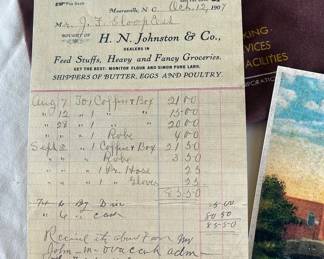 Mooresville, N. C. Oct. 12, 1907
M r. J. F. Sloop Cash
BOUGHT OF H. N. Johnston & Co.,
DEALERS IN
Feed Stuffs, Heavy and Fancy Groceries.
GET THE BEST: MONITOR FLOUR AND SIMON PURE LARD.
SHIPPERS OF BUTTER, EGGS AND POULTRY.
Aug 7 To 1 Coffin & Box 21 00
" 12 " 1 " " 15 00
" 28 " 1 " " 20 00
" " " 1 Robe 4 00
Sept 2 " 1 Coffin & Box 21 50
" " " Robe 3 50
" " " 1 Pr Hose 25
" " " 1 " Gloves 25
85 50
" 6 " cash 80 50
85 50
Received the above from
John adm
KING
VICES
FACILITIES